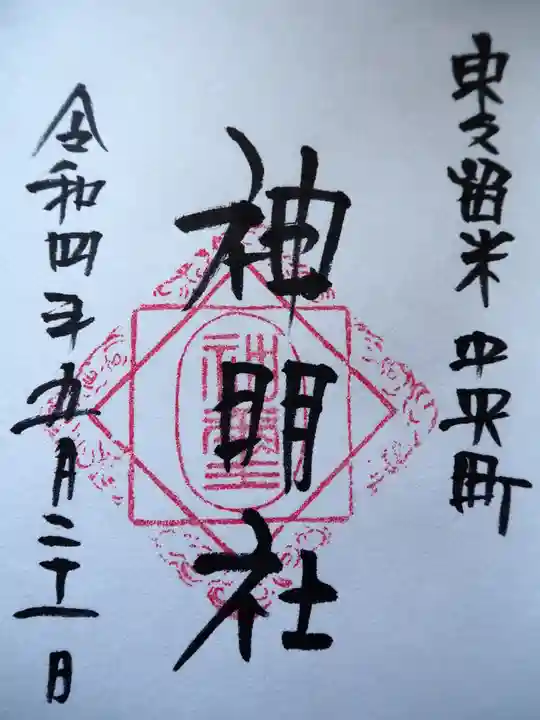 東久留米 中央町
神明社
令和四年九月二十一日